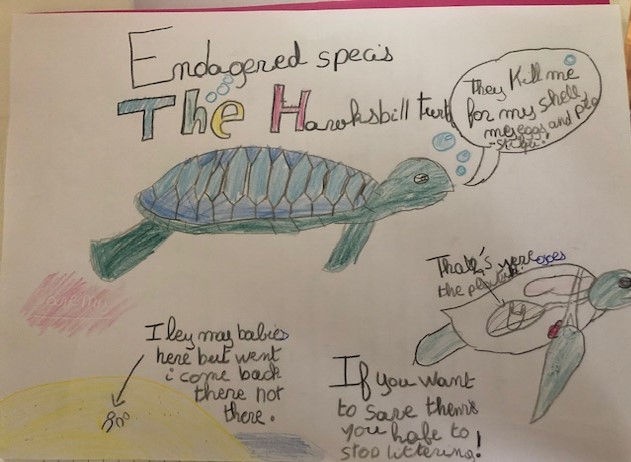 Endagered specis
The Hawksbill turtl
They Kill me
for my shell
my eggs and
stop!
That's
the
I ley may babies
here but went
i come back
there not
there.
If you want
to save them
you hafe to
stop littering!